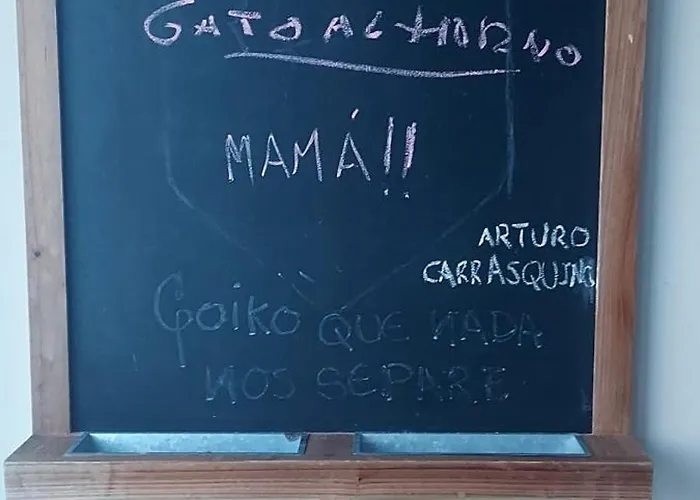 GATO AL HORNO
MAMÁ!!
ARTURO
CARRASQUINO
Goiko QUE NADA
NOS SEPARE